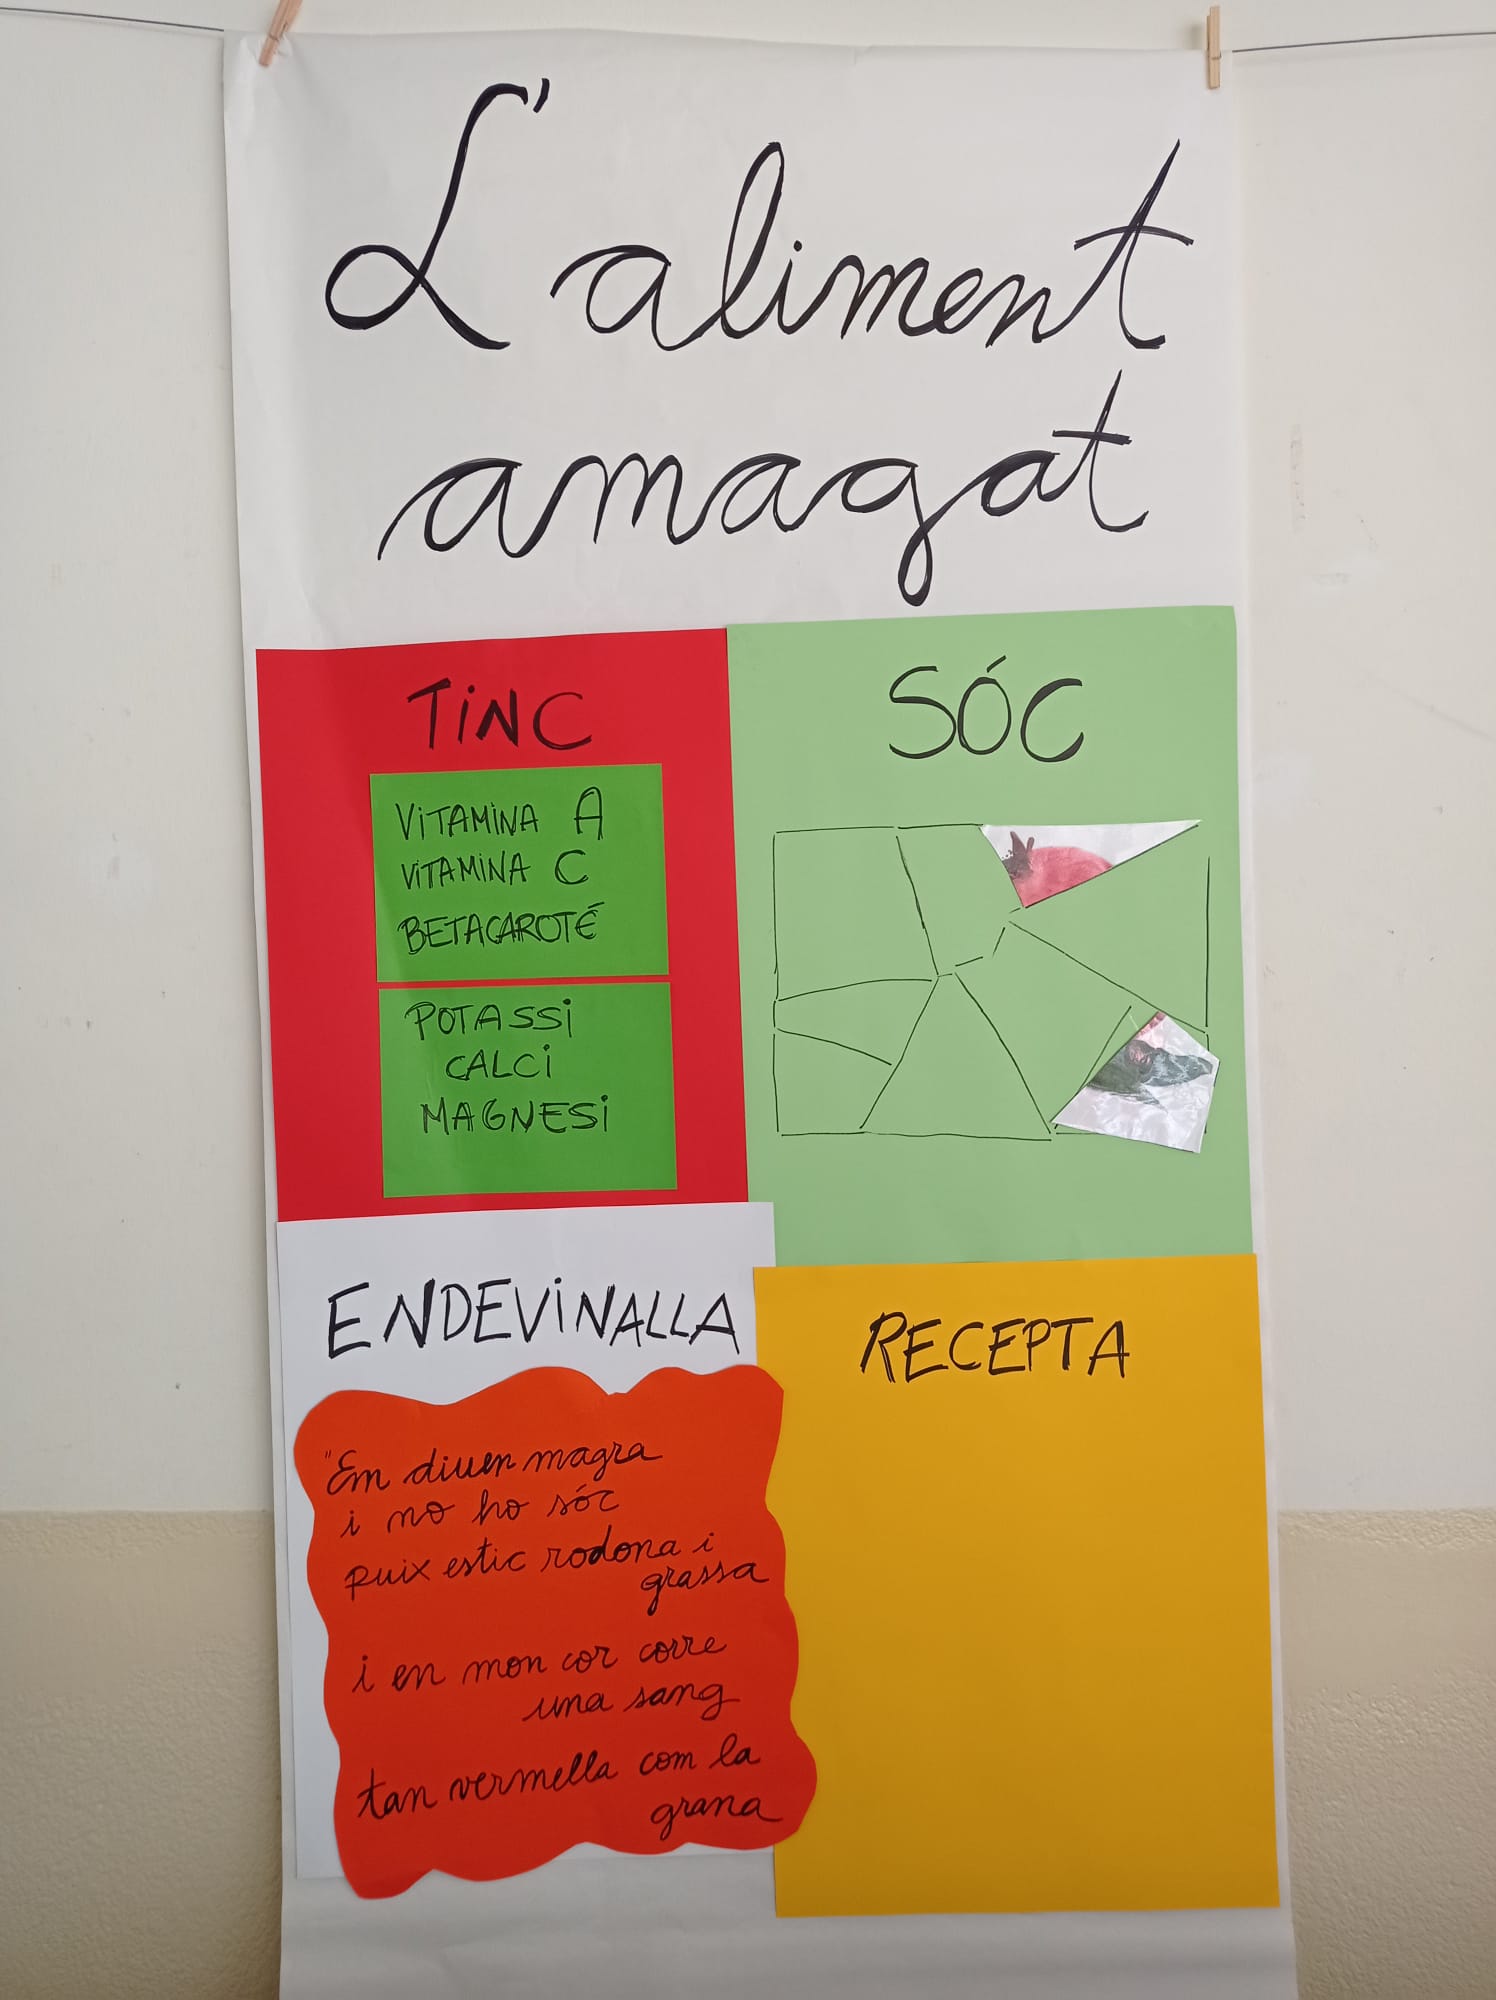 L'aliment
amagat
TiNC
ViTAMiNA A
ViTAMiNA C
BETACAROTÉ
POTASSi
CALCi
MAGNESi
SÓC
ENDEViNALLA
"Em diuen magra
i no ho sóc
puix estic rodona i
grassa
i en mon cor corre
una sang
tan vermella com la
grana
RECEPTA